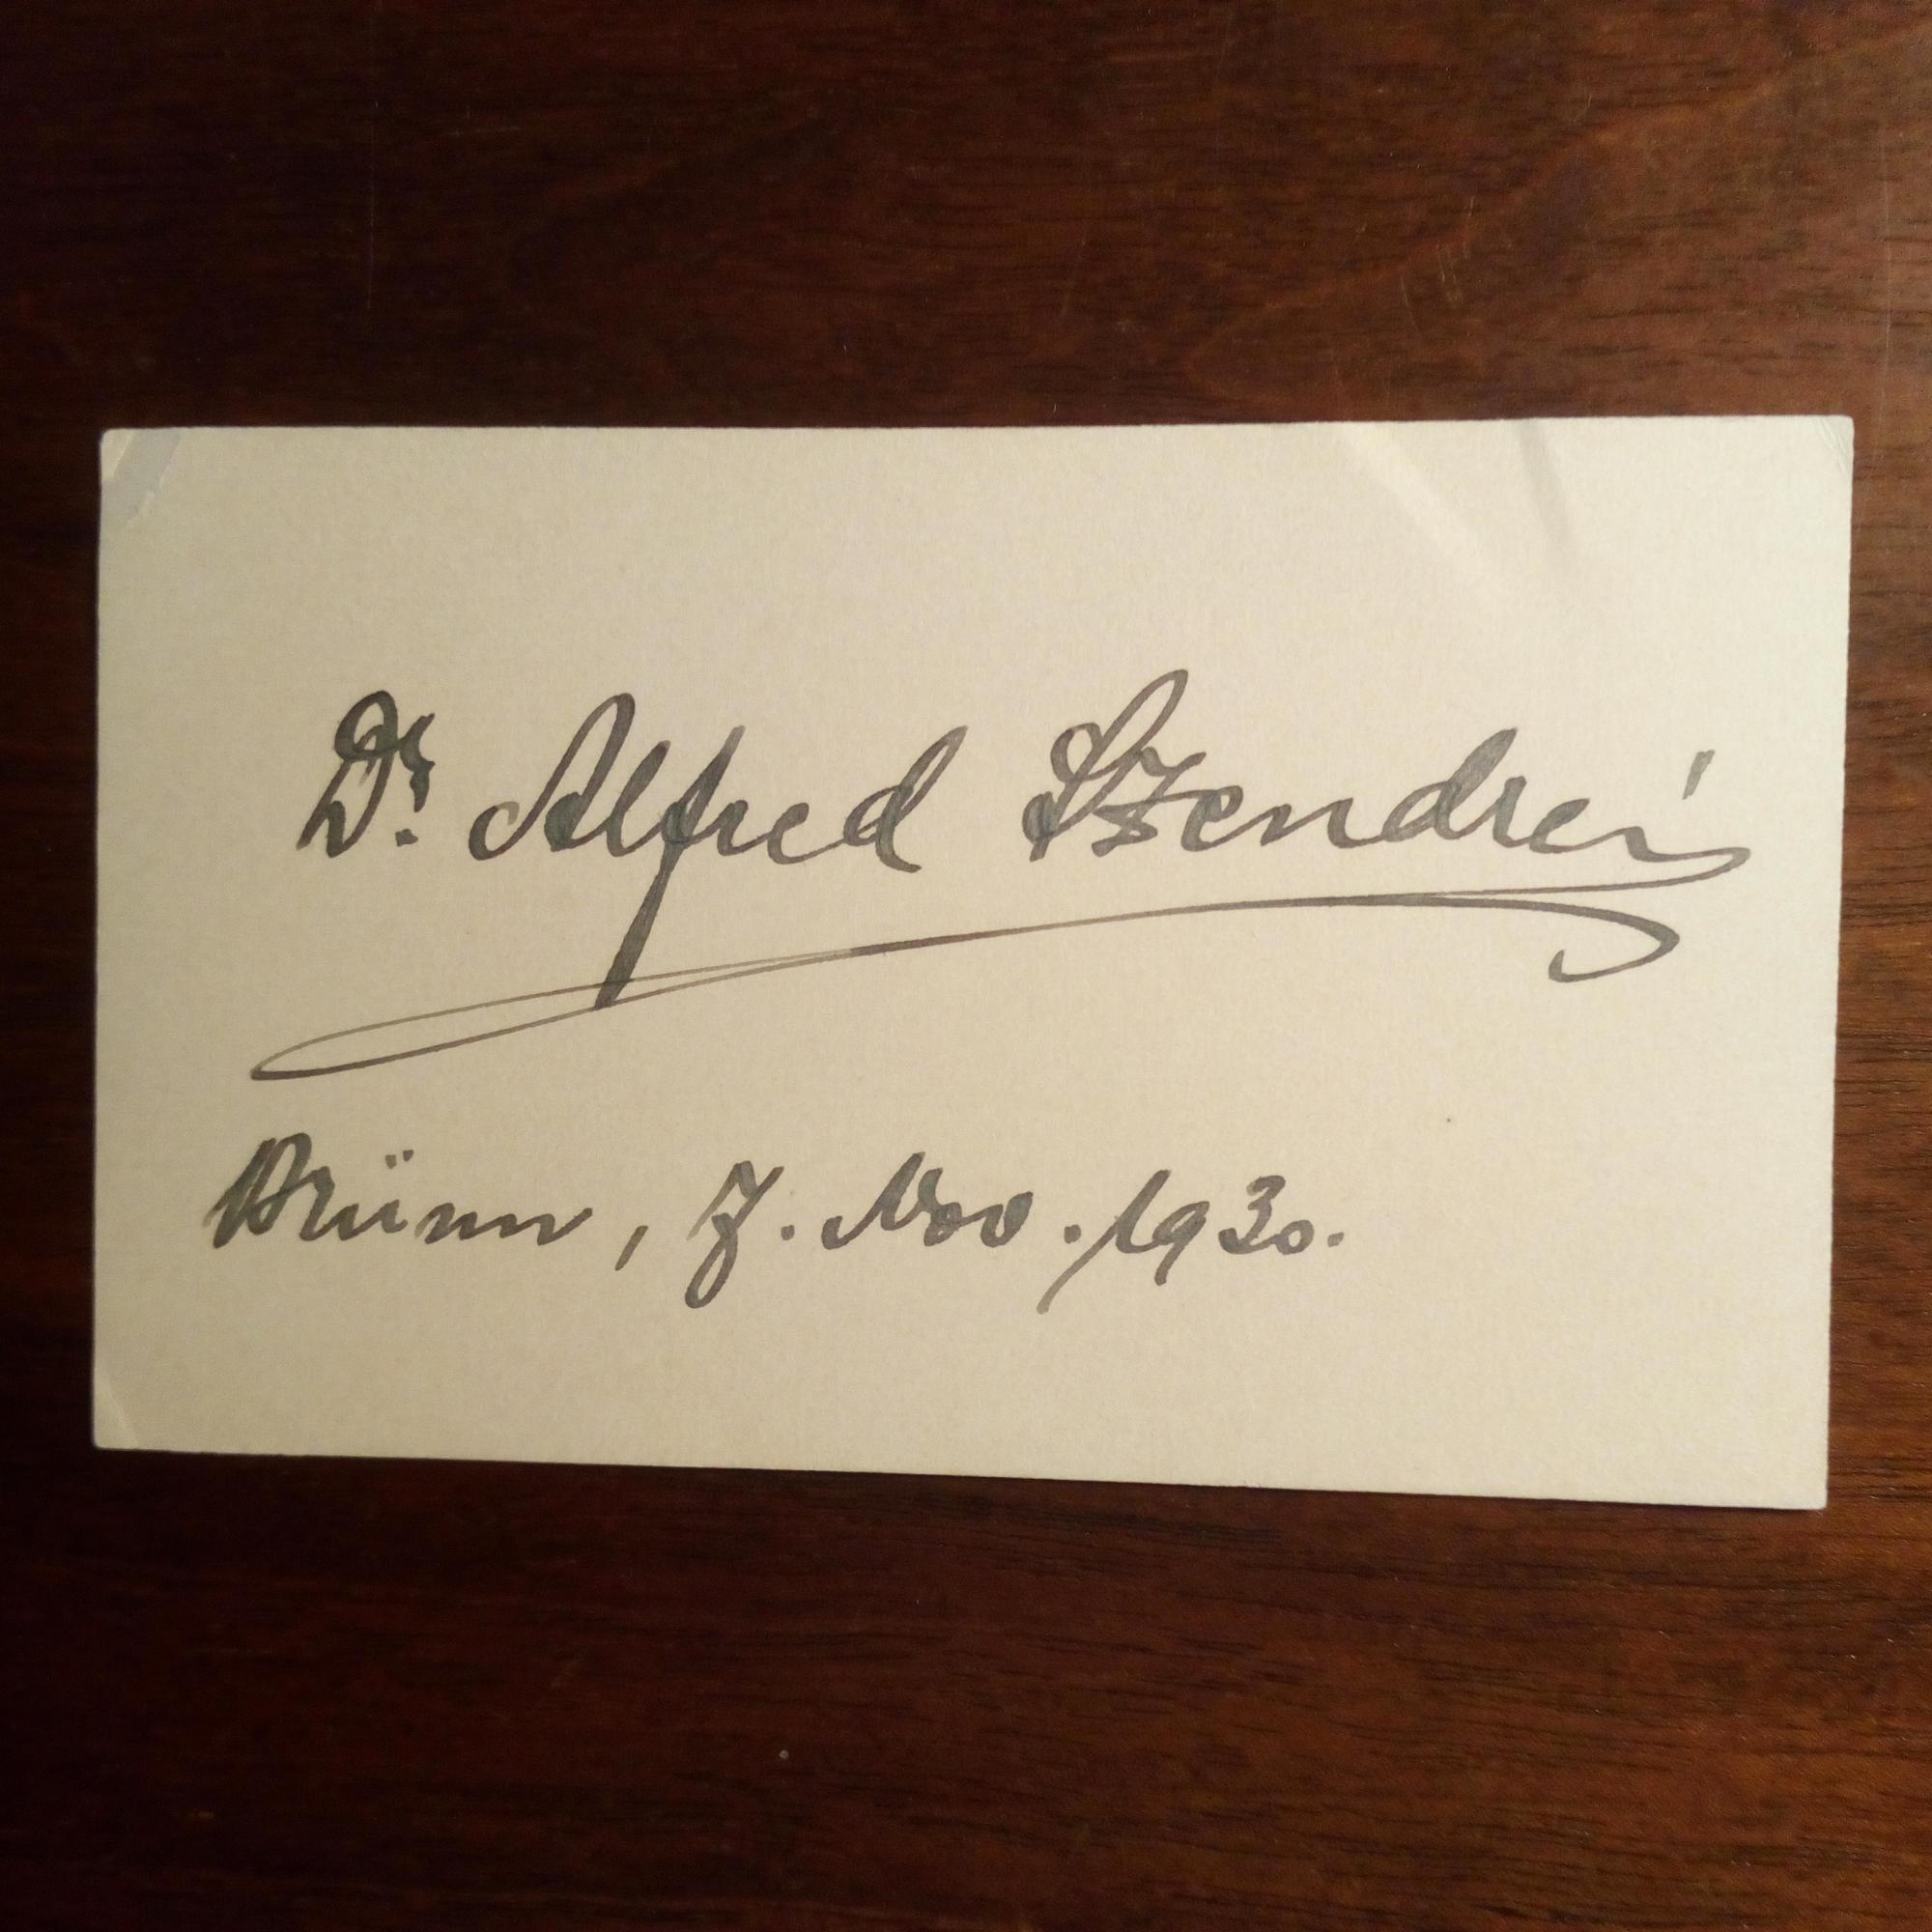 Dr. Alfred Szendrei
Brünn, 7. Nov. 1930.